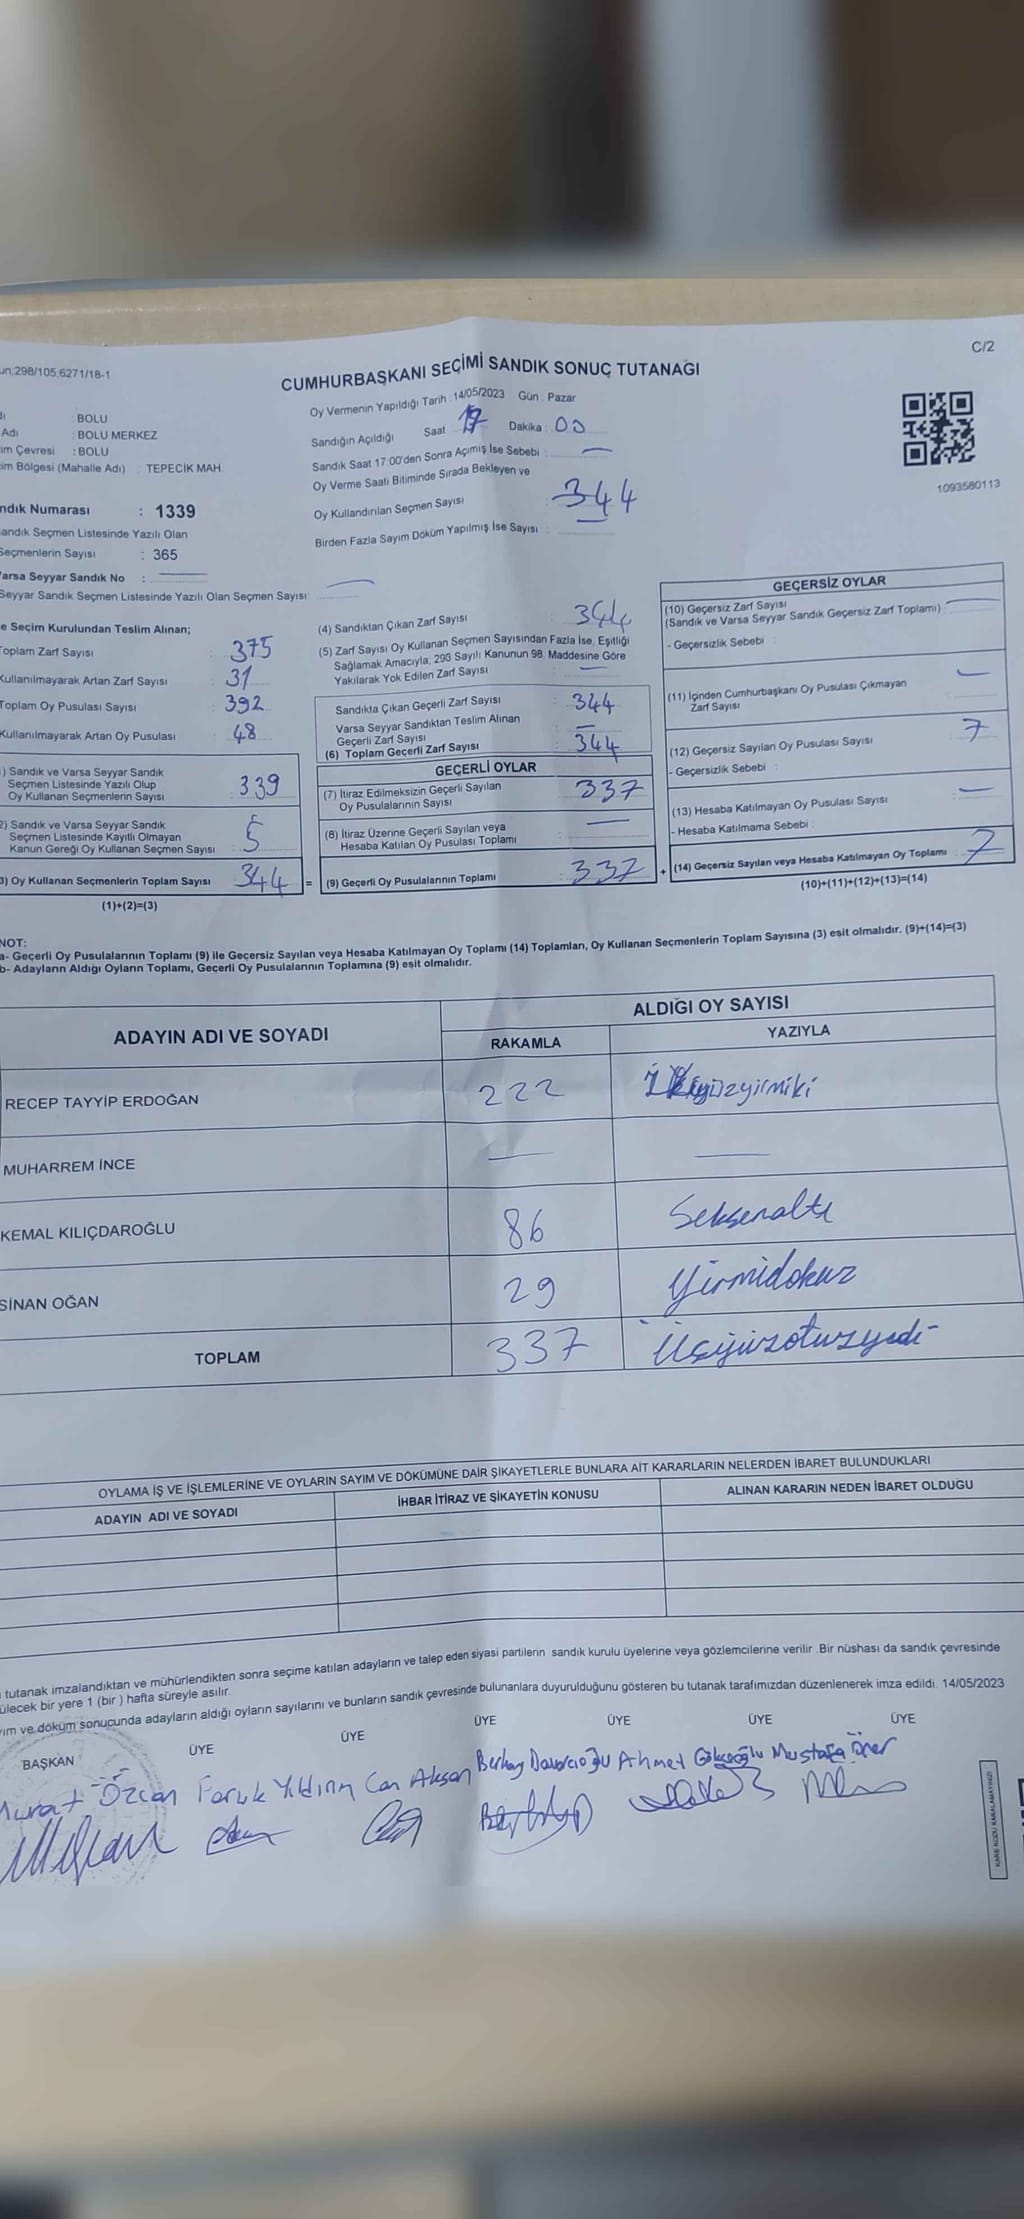 un;298/105,6271/18-1
C/2
CUMHURBAŞKANI SEÇİMİ SANDIK SONUÇ TUTANAĞI
Oy Vermenin Yapıldığı Tarih : 14/05/2023 Gün : Pazar
: BOLU
Adı : BOLU MERKEZ
im Çevresi : BOLU
im Bölgesi (Mahalle Adı) : TEPECİK MAH.
Sandığın Açıldığı Saat 17 Dakika : 00
Sandık Saat 17:00'den Sonra Açımış İse Sebebi : —
Oy Verme Saati Bitiminde Sırada Bekleyen ve
Oy Kullandırılan Seçmen Sayısı : 344
Birden Fazla Sayım Döküm Yapılmış İse Sayısı : —
1093580113
ndık Numarası : 1339
andık Seçmen Listesinde Yazılı Olan
Seçmenlerin Sayısı : 365
Varsa Seyyar Sandık No : —
Seyyar Sandık Seçmen Listesinde Yazılı Olan Seçmen Sayısı: —
e Seçim Kurulundan Teslim Alınan;
Toplam Zarf Sayısı : 375
Kullanılmayarak Artan Zarf Sayısı : 31
Toplam Oy Pusulası Sayısı : 392
Kullanılmayarak Artan Oy Pusulası : 48
1) Sandık ve Varsa Seyyar Sandık
Seçmen Listesinde Yazılı Olup
Oy Kullanan Seçmenlerin Sayısı : 339
2) Sandık ve Varsa Seyyar Sandık
Seçmen Listesinde Kayıtlı Olmayan
Kanun Gereği Oy Kullanan Seçmen Sayısı : 5
3) Oy Kullanan Seçmenlerin Toplam Sayısı : 344 =
(1)+(2)=(3)
(4) Sandıktan Çıkan Zarf Sayısı : 344
(5) Zarf Sayısı Oy Kullanan Seçmen Sayısından Fazla İse, Eşitliği
Sağlamak Amacıyla; 298 Sayılı Kanunun 98. Maddesine Göre
Yakılarak Yok Edilen Zarf Sayısı : —
Sandıkta Çıkan Geçerli Zarf Sayısı : 344
Varsa Seyyar Sandıktan Teslim Alınan
Geçerli Zarf Sayısı : —
(6) Toplam Geçerli Zarf Sayısı : 344
GEÇERLİ OYLAR
(7) İtiraz Edilmeksizin Geçerli Sayılan
Oy Pusulalarının Sayısı : 337
(8) İtiraz Üzerine Geçerli Sayılan veya
Hesaba Katılan Oy Pusulası Toplamı : —
(9) Geçerli Oy Pusulalarının Toplamı : 337 +
GEÇERSİZ OYLAR
(10) Geçersiz Zarf Sayısı
(Sandık ve Varsa Seyyar Sandık Geçersiz Zarf Toplamı) : —
- Geçersizlik Sebebi :
(11) İçinden Cumhurbaşkanı Oy Pusulası Çıkmayan
Zarf Sayısı : —
(12) Geçersiz Sayılan Oy Pusulası Sayısı : 7
- Geçersizlik Sebebi :
(13) Hesaba Katılmayan Oy Pusulası Sayısı : —
- Hesaba Katılmama Sebebi :
(14) Geçersiz Sayılan veya Hesaba Katılmayan Oy Toplamı : 7
(10)+(11)+(12)+(13)=(14)
NOT:
a- Geçerli Oy Pusulalarının Toplamı (9) ile Geçersiz Sayılan veya Hesaba Katılmayan Oy Toplamı (14) Toplamları, Oy Kullanan Seçmenlerin Toplam Sayısına (3) eşit olmalıdır. (9)+(14)=(3)
b- Adayların Aldığı Oyların Toplamı, Geçerli Oy Pusulalarının Toplamına (9) eşit olmalıdır.
ADAYIN ADI VE SOYADI
ALDIĞI OY SAYISI
RAKAMLA YAZIYLA
RECEP TAYYİP ERDOĞAN 222 ikiyüzyirmiki
MUHARREM İNCE — —
KEMAL KILIÇDAROĞLU 86 Seksenaltı
SİNAN OĞAN 29 Yirmidokuz
TOPLAM 337 Üçyüzotuzyedi
OYLAMA İŞ VE İŞLEMLERİNE VE OYLARIN SAYIM VE DÖKÜMÜNE DAİR ŞİKAYETLERLE BUNLARA AİT KARARLARIN NELERDEN İBARET BULUNDUKLARI
ADAYIN ADI VE SOYADI İHBAR İTİRAZ VE ŞİKAYETİN KONUSU ALINAN KARARIN NEDEN İBARET OLDUĞU
tutanak imzalandıktan ve mühürlendikten sonra seçime katılan adayların ve talep eden siyasi partilerin sandık kurulu üyelerine veya gözlemcilerine verilir. Bir nüshası da sandık çevresinde
ülecek bir yere 1 (bir ) hafta süreyle asılır.
yım ve döküm sonucunda adayların aldığı oyların sayılarını ve bunların sandık çevresinde bulunanlara duyurulduğunu gösteren bu tutanak tarafımızdan düzenlenerek imza edildi. 14/05/2023
BAŞKAN ÜYE ÜYE ÜYE ÜYE ÜYE ÜYE
Murat Özcan Faruk Yıldırım Can Aksan Berkay Ahmet Gökçeoğlu Mustafa Öner
KARE KODU KARALAMAYINIZ!